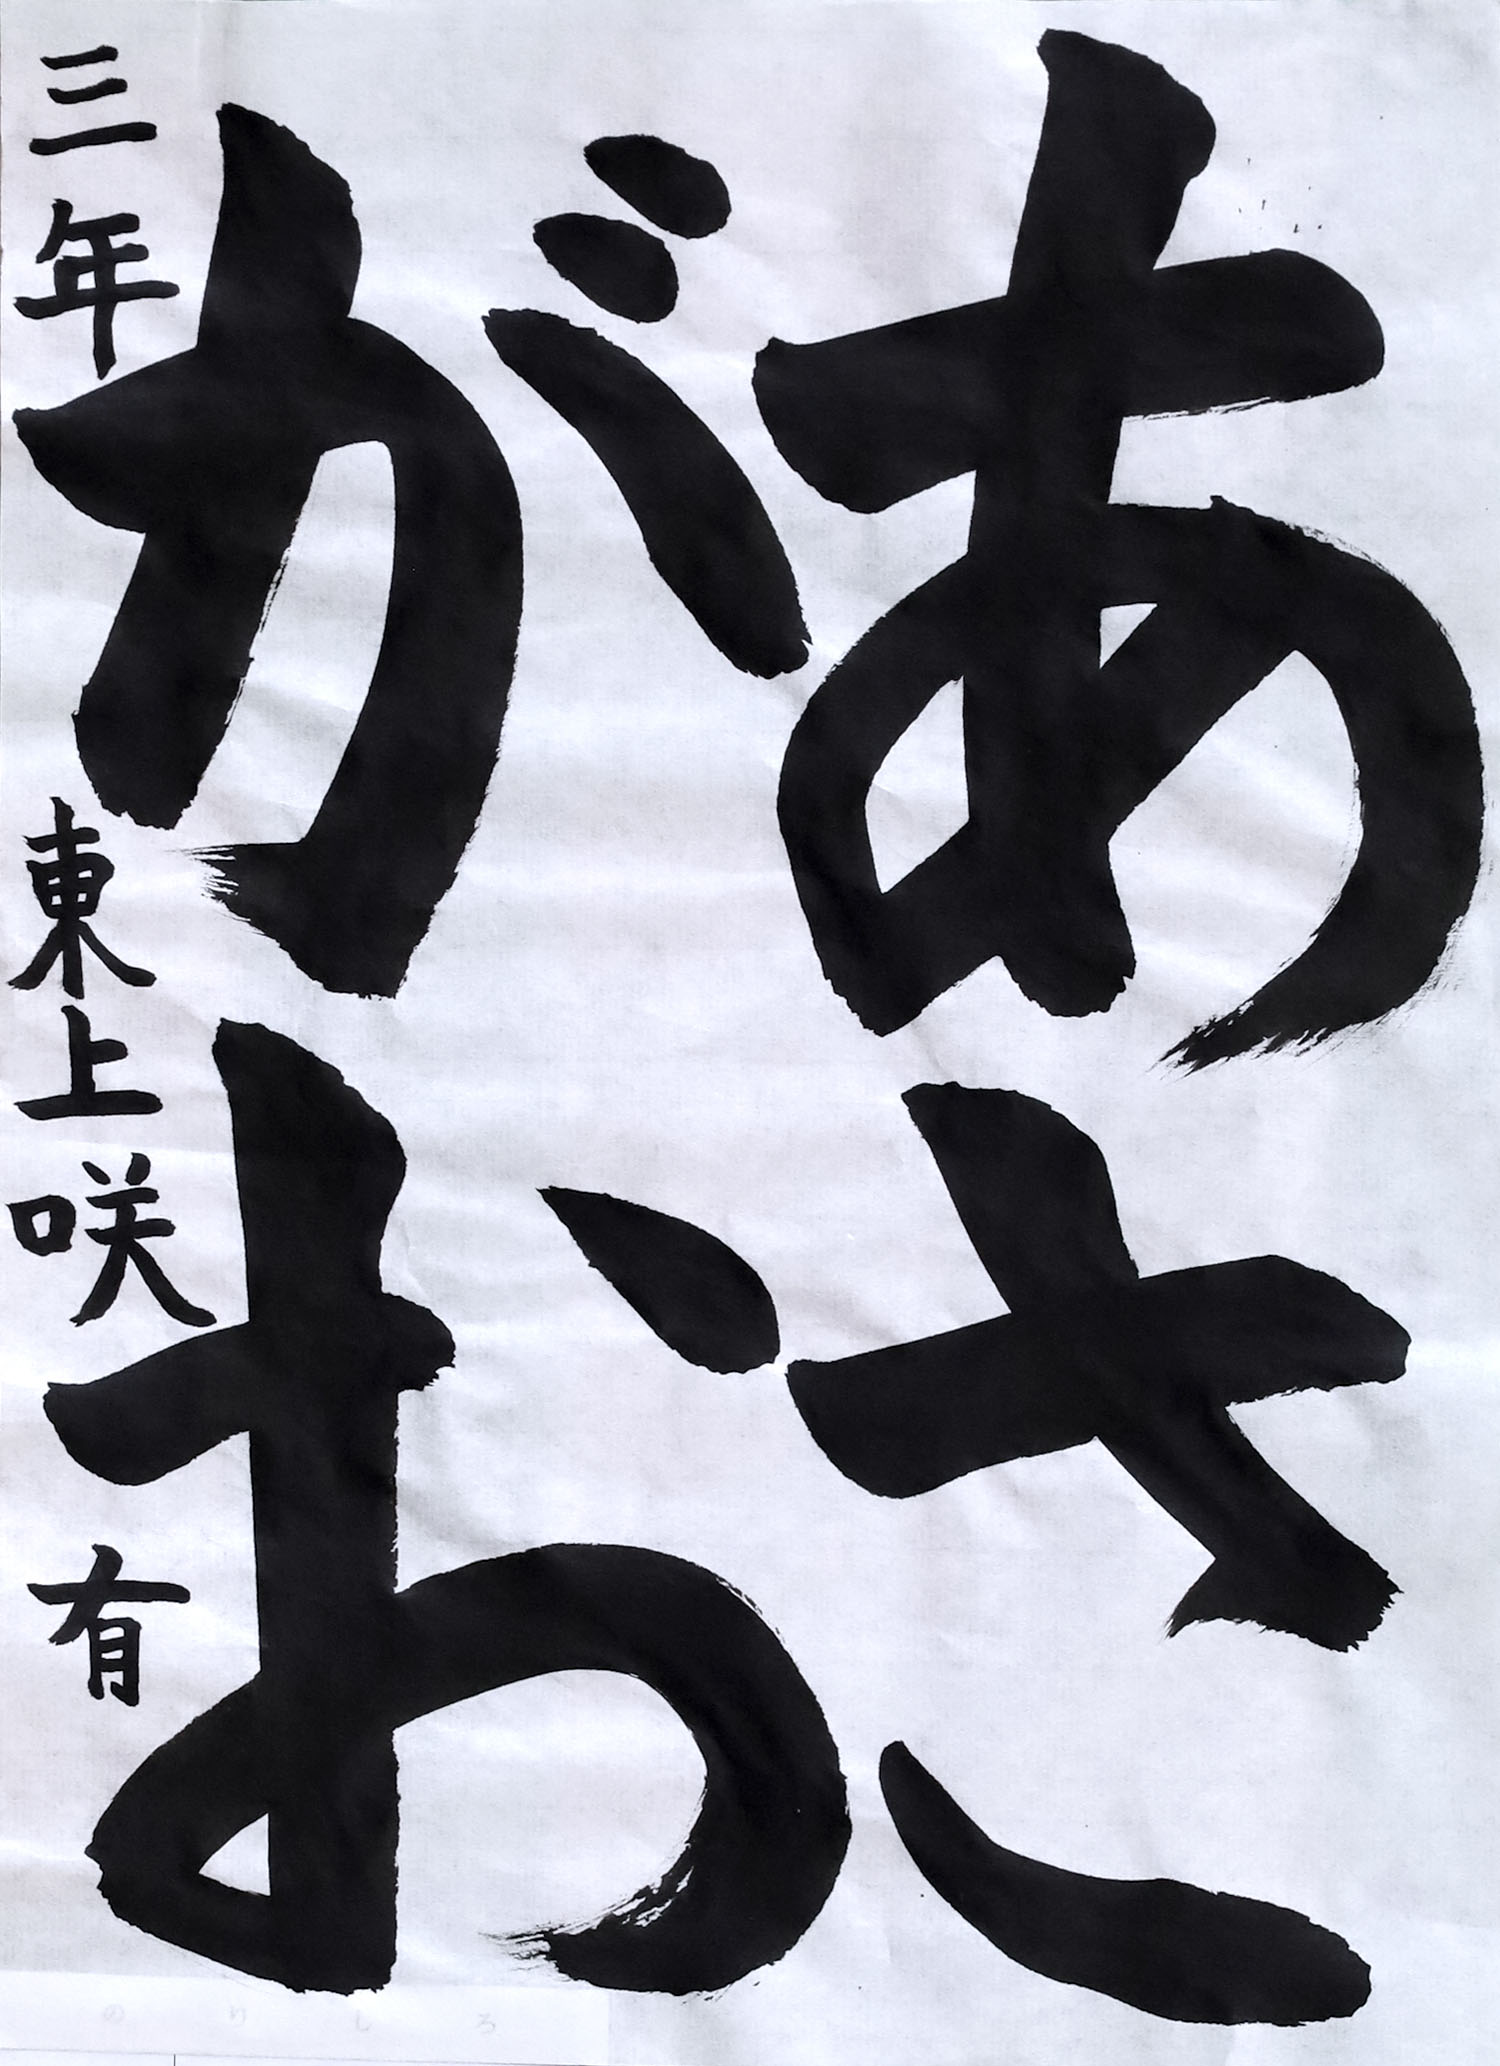 あさ
がお
三年 東上咲 有
のりしろ